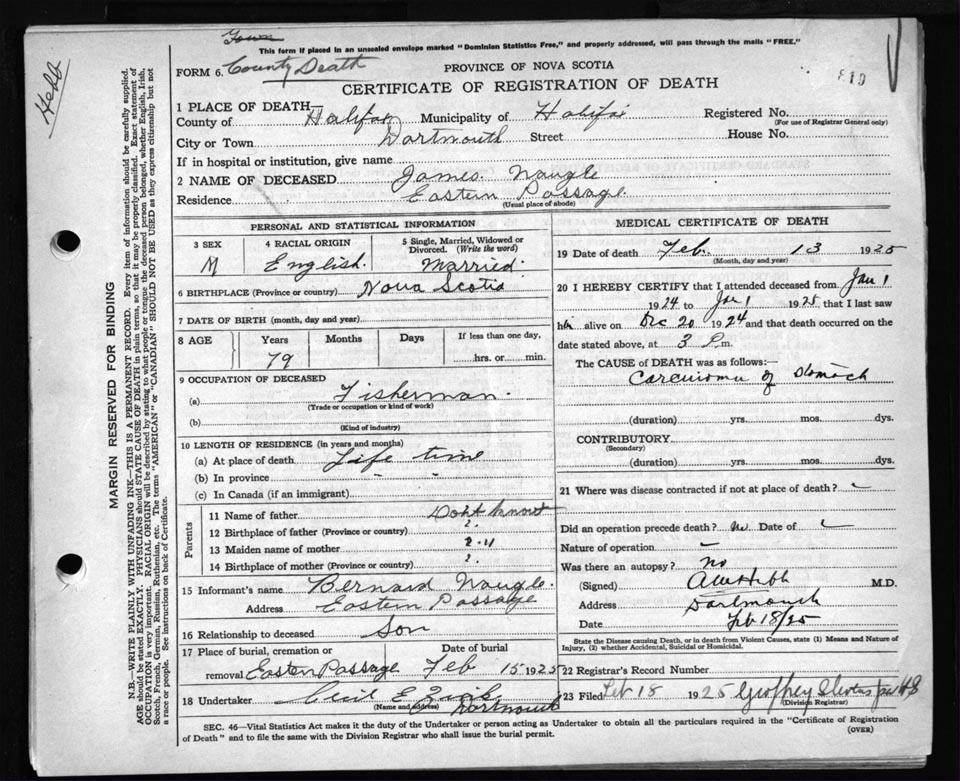 Town
This form if placed in an unsealed envelope marked "Dominion Statistics Free," and properly addressed, will pass through the mails "FREE."
Hebb
FORM 6. County Death
PROVINCE OF NOVA SCOTIA
CERTIFICATE OF REGISTRATION OF DEATH
1 PLACE OF DEATH
County of Halifax Municipality of Halifax Registered No.
(For use of Registrar General only)
City or Town Dartmouth Street House No.
If in hospital or institution, give name
2 NAME OF DECEASED James Naugle
Residence Eastern Passage
(Usual place of abode)
MARGIN RESERVED FOR BINDING
N.B.—WRITE PLAINLY WITH UNFADING INK—THIS IS A PERMANENT RECORD. Every item of information should be carefully supplied.
AGE should be stated EXACTLY. PHYSICIANS should STATE CAUSE OF DEATH in plain terms, so that it may be properly classified. Exact statement of
OCCUPATION is very important. RACIAL ORIGIN will be described by stating to what people or tongue the deceased person belonged, whether English, Irish,
Scotch, French, German, Russian, Ruthenian, etc. The terms "AMERICAN" or "CANADIAN" SHOULD NOT BE USED as they express citizenship but not
a race or people. See instructions on back of Certificate.
PERSONAL AND STATISTICAL INFORMATION
3 SEX
M
4 RACIAL ORIGIN
English.
5 Single, Married, Widowed or
Divorced. (Write the word)
Married
6 BIRTHPLACE (Province or country) Nova Scotia
7 DATE OF BIRTH (month, day and year)
8 AGE Years Months Days If less than one day,
79 hrs. or min.
9 OCCUPATION OF DECEASED
(a) Fisherman
(Trade or occupation or kind of work)
(b)
(Kind of industry)
10 LENGTH OF RESIDENCE (in years and months)
(a) At place of death Life time
(b) In province
(c) In Canada (if an immigrant)
Parents
11 Name of father Don't know
12 Birthplace of father (Province or country) ?
13 Maiden name of mother
14 Birthplace of mother (Province or country) ?
15 Informant's name Bernard Naugle
Address Eastern Passage
16 Relationship to deceased Son
17 Place of burial, cremation or Date of burial
removal Eastern Passage Feb 15 1925
18 Undertaker Cecil E
(Name and address) Dartmouth
MEDICAL CERTIFICATE OF DEATH
19 Date of death Feb. 13 1925
(Month, day and year)
20 I HEREBY CERTIFY that I attended deceased from Jan 1
1924 to Jan 1 1925 that I last saw
him alive on Dec 20 1924 and that death occurred on the
date stated above, at 3 P.m.
The CAUSE of DEATH was as follows:—
Carcinoma of Stomach
(duration) yrs. mos. dys.
CONTRIBUTORY
(Secondary)
(duration) yrs. mos. dys.
21 Where was disease contracted if not at place of death?
Did an operation precede death? no Date of
Nature of operation
Was there an autopsy? no
(Signed) M.D.
Address Dartmouth
Date Feb 18/25
State the Disease causing Death, or in death from Violent Causes, state (1) Means and Nature of
Injury, (2) whether Accidental, Suicidal or Homicidal.
22 Registrar's Record Number
23 Filed Feb 18 1925 Geoffrey
(Division Registrar)
SEC. 46—Vital Statistics Act makes it the duty of the Undertaker or person acting as Undertaker to obtain all the particulars required in the "Certificate of Registration
of Death" and to file the same with the Division Registrar who shall issue the burial permit.
(OVER)